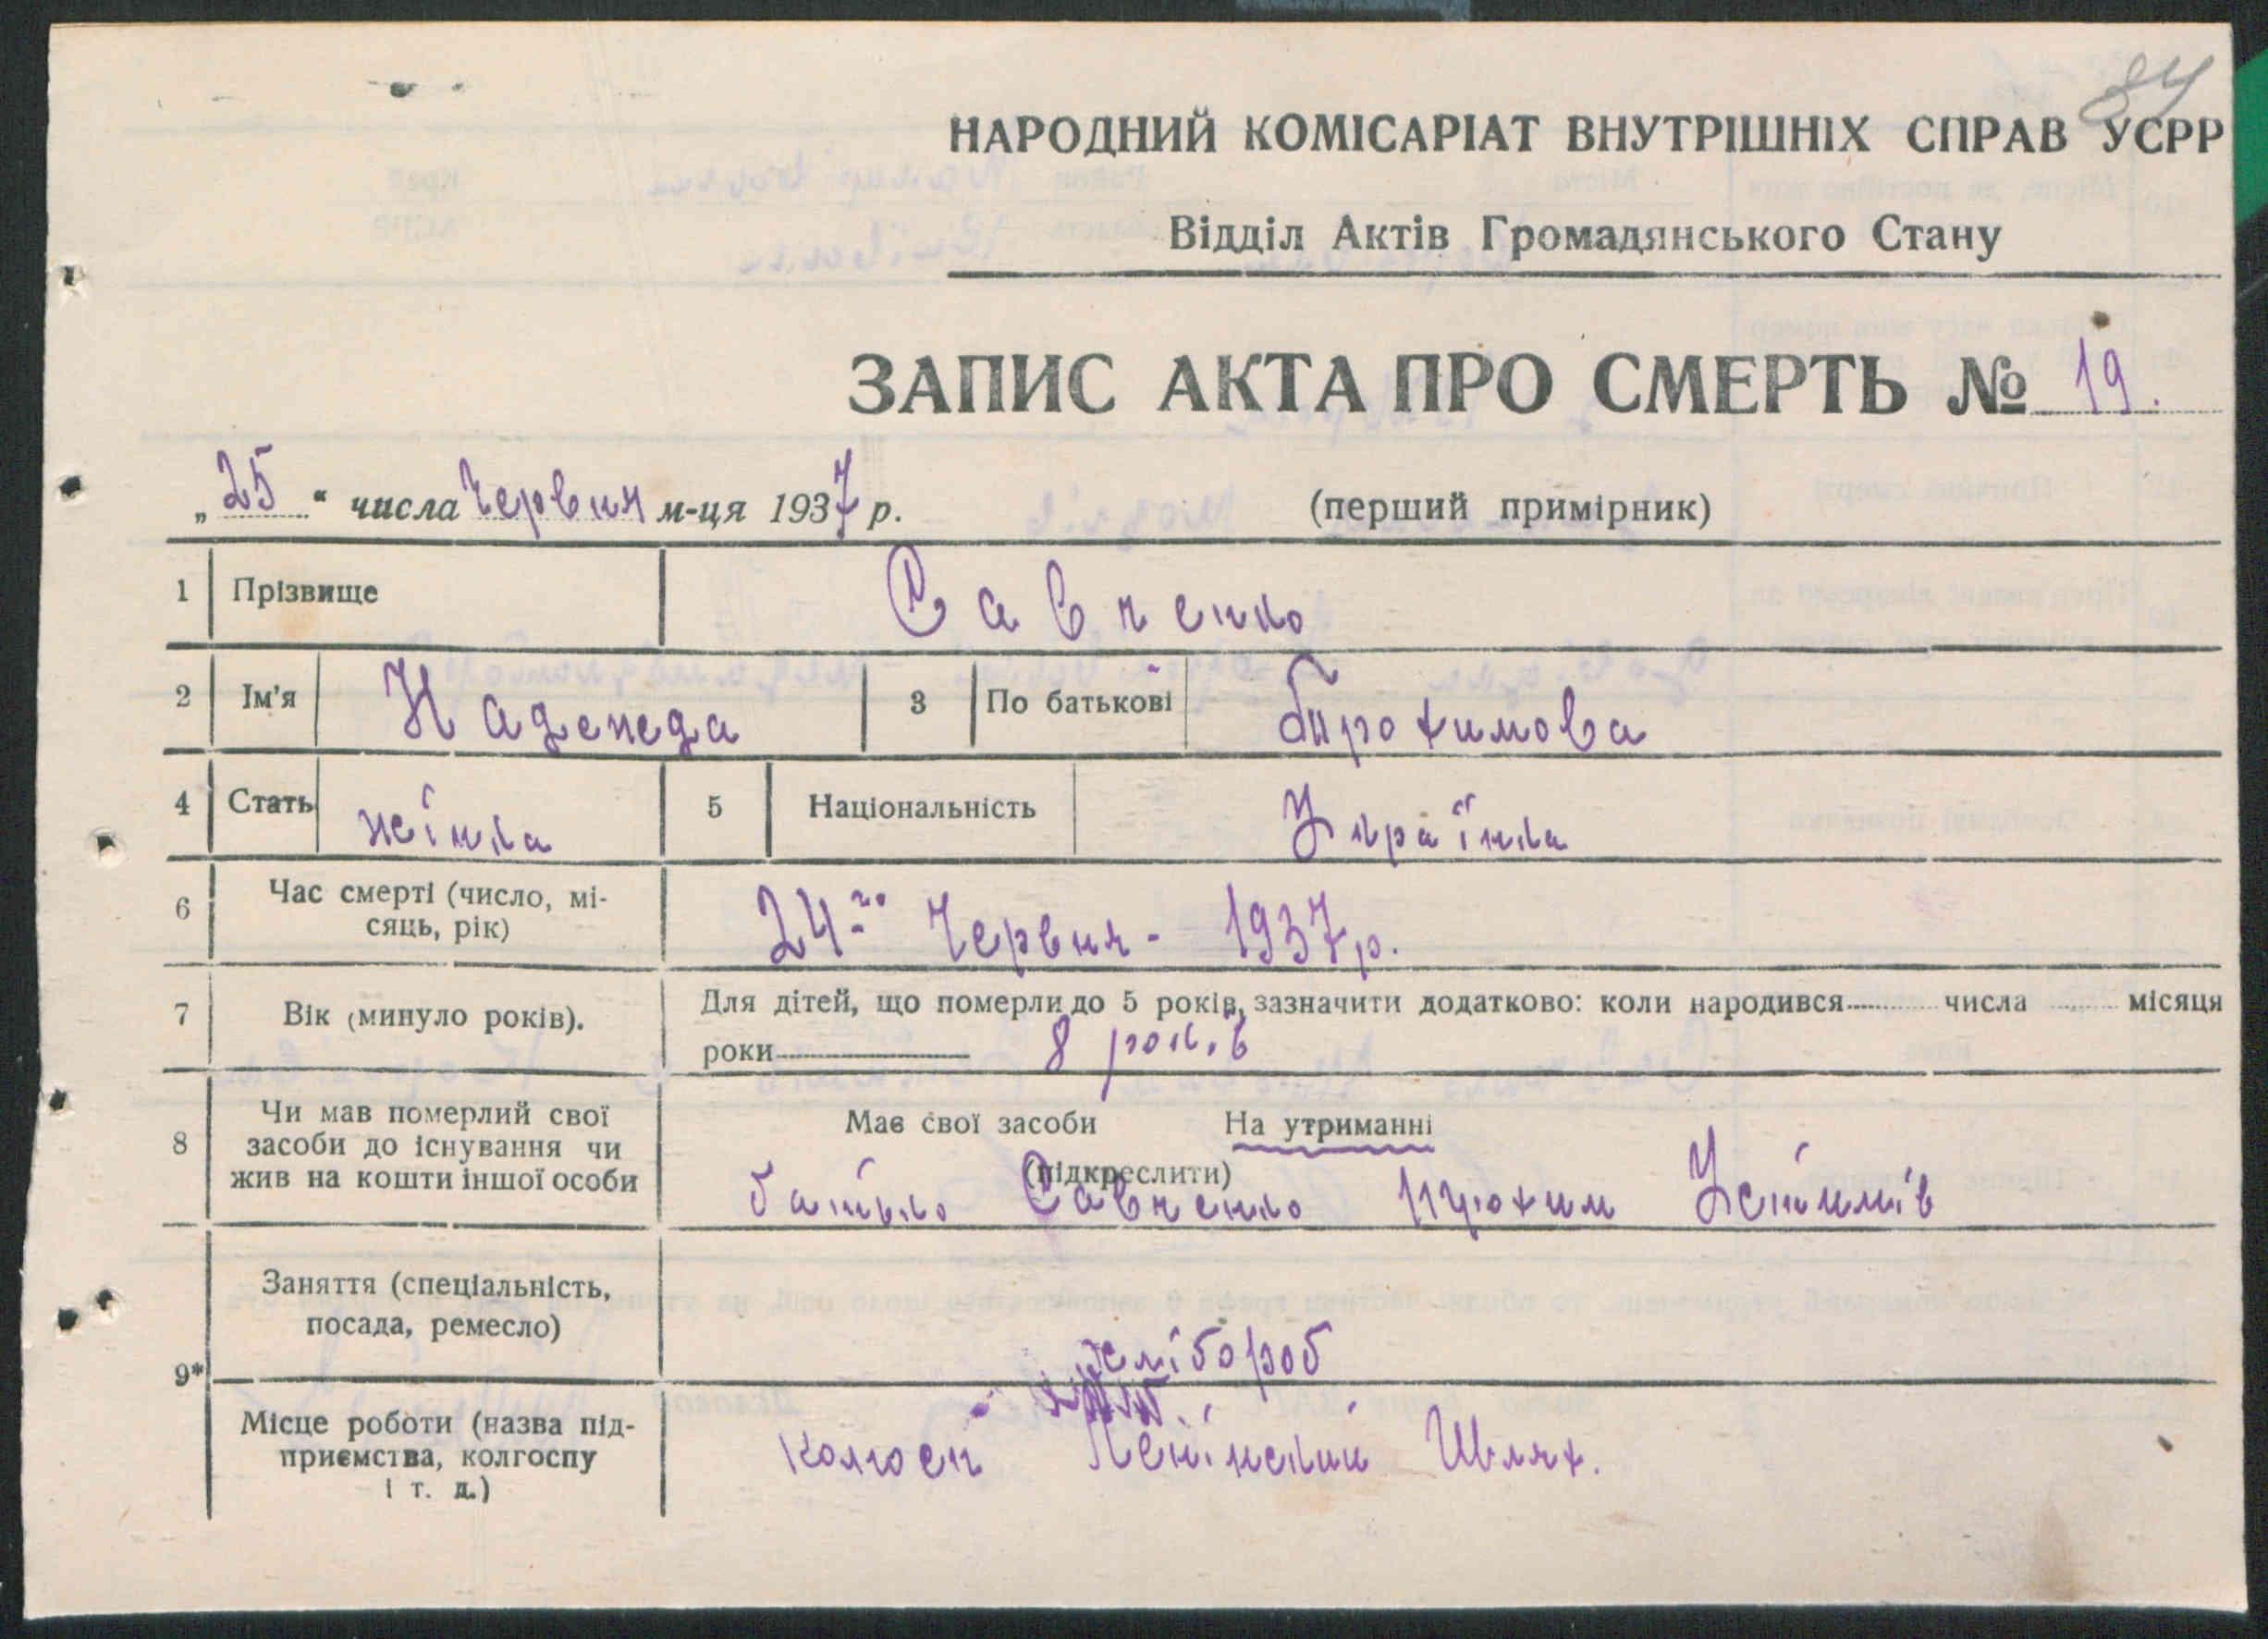 84
НАРОДНИЙ КОМІСАРІАТ ВНУТРІШНІХ СПРАВ УСРР
Відділ Актів Громадянського Стану
ЗАПИС АКТА ПРО СМЕРТЬ № 19.
„25“ числа Червня м-ця 1937 р. (перший примірник)
1 Прізвище Савченко
2 Ім'я Надежда 3 По батькові Трохимова
4 Стать жінка 5 Національність Українка
6 Час смерті (число, мі-
сяць, рік) 24го Червня - 1937 р.
7 Вік (минуло років). Для дітей, що померли до 5 років, зазначити додатково: коли народився числа місяця
роки 8 років
8 Чи мав померлий свої
засоби до існування чи
жив на кошти іншої особи
Має свої засоби На утриманні
(підкреслити)
батько Савченко Трохим Устимів
9* Заняття (спеціальність,
посада, ремесло)
хлібороб
Місце роботи (назва під-
приємства, колгоспу
і т. д.)
колгосп Ленінский Шлях.